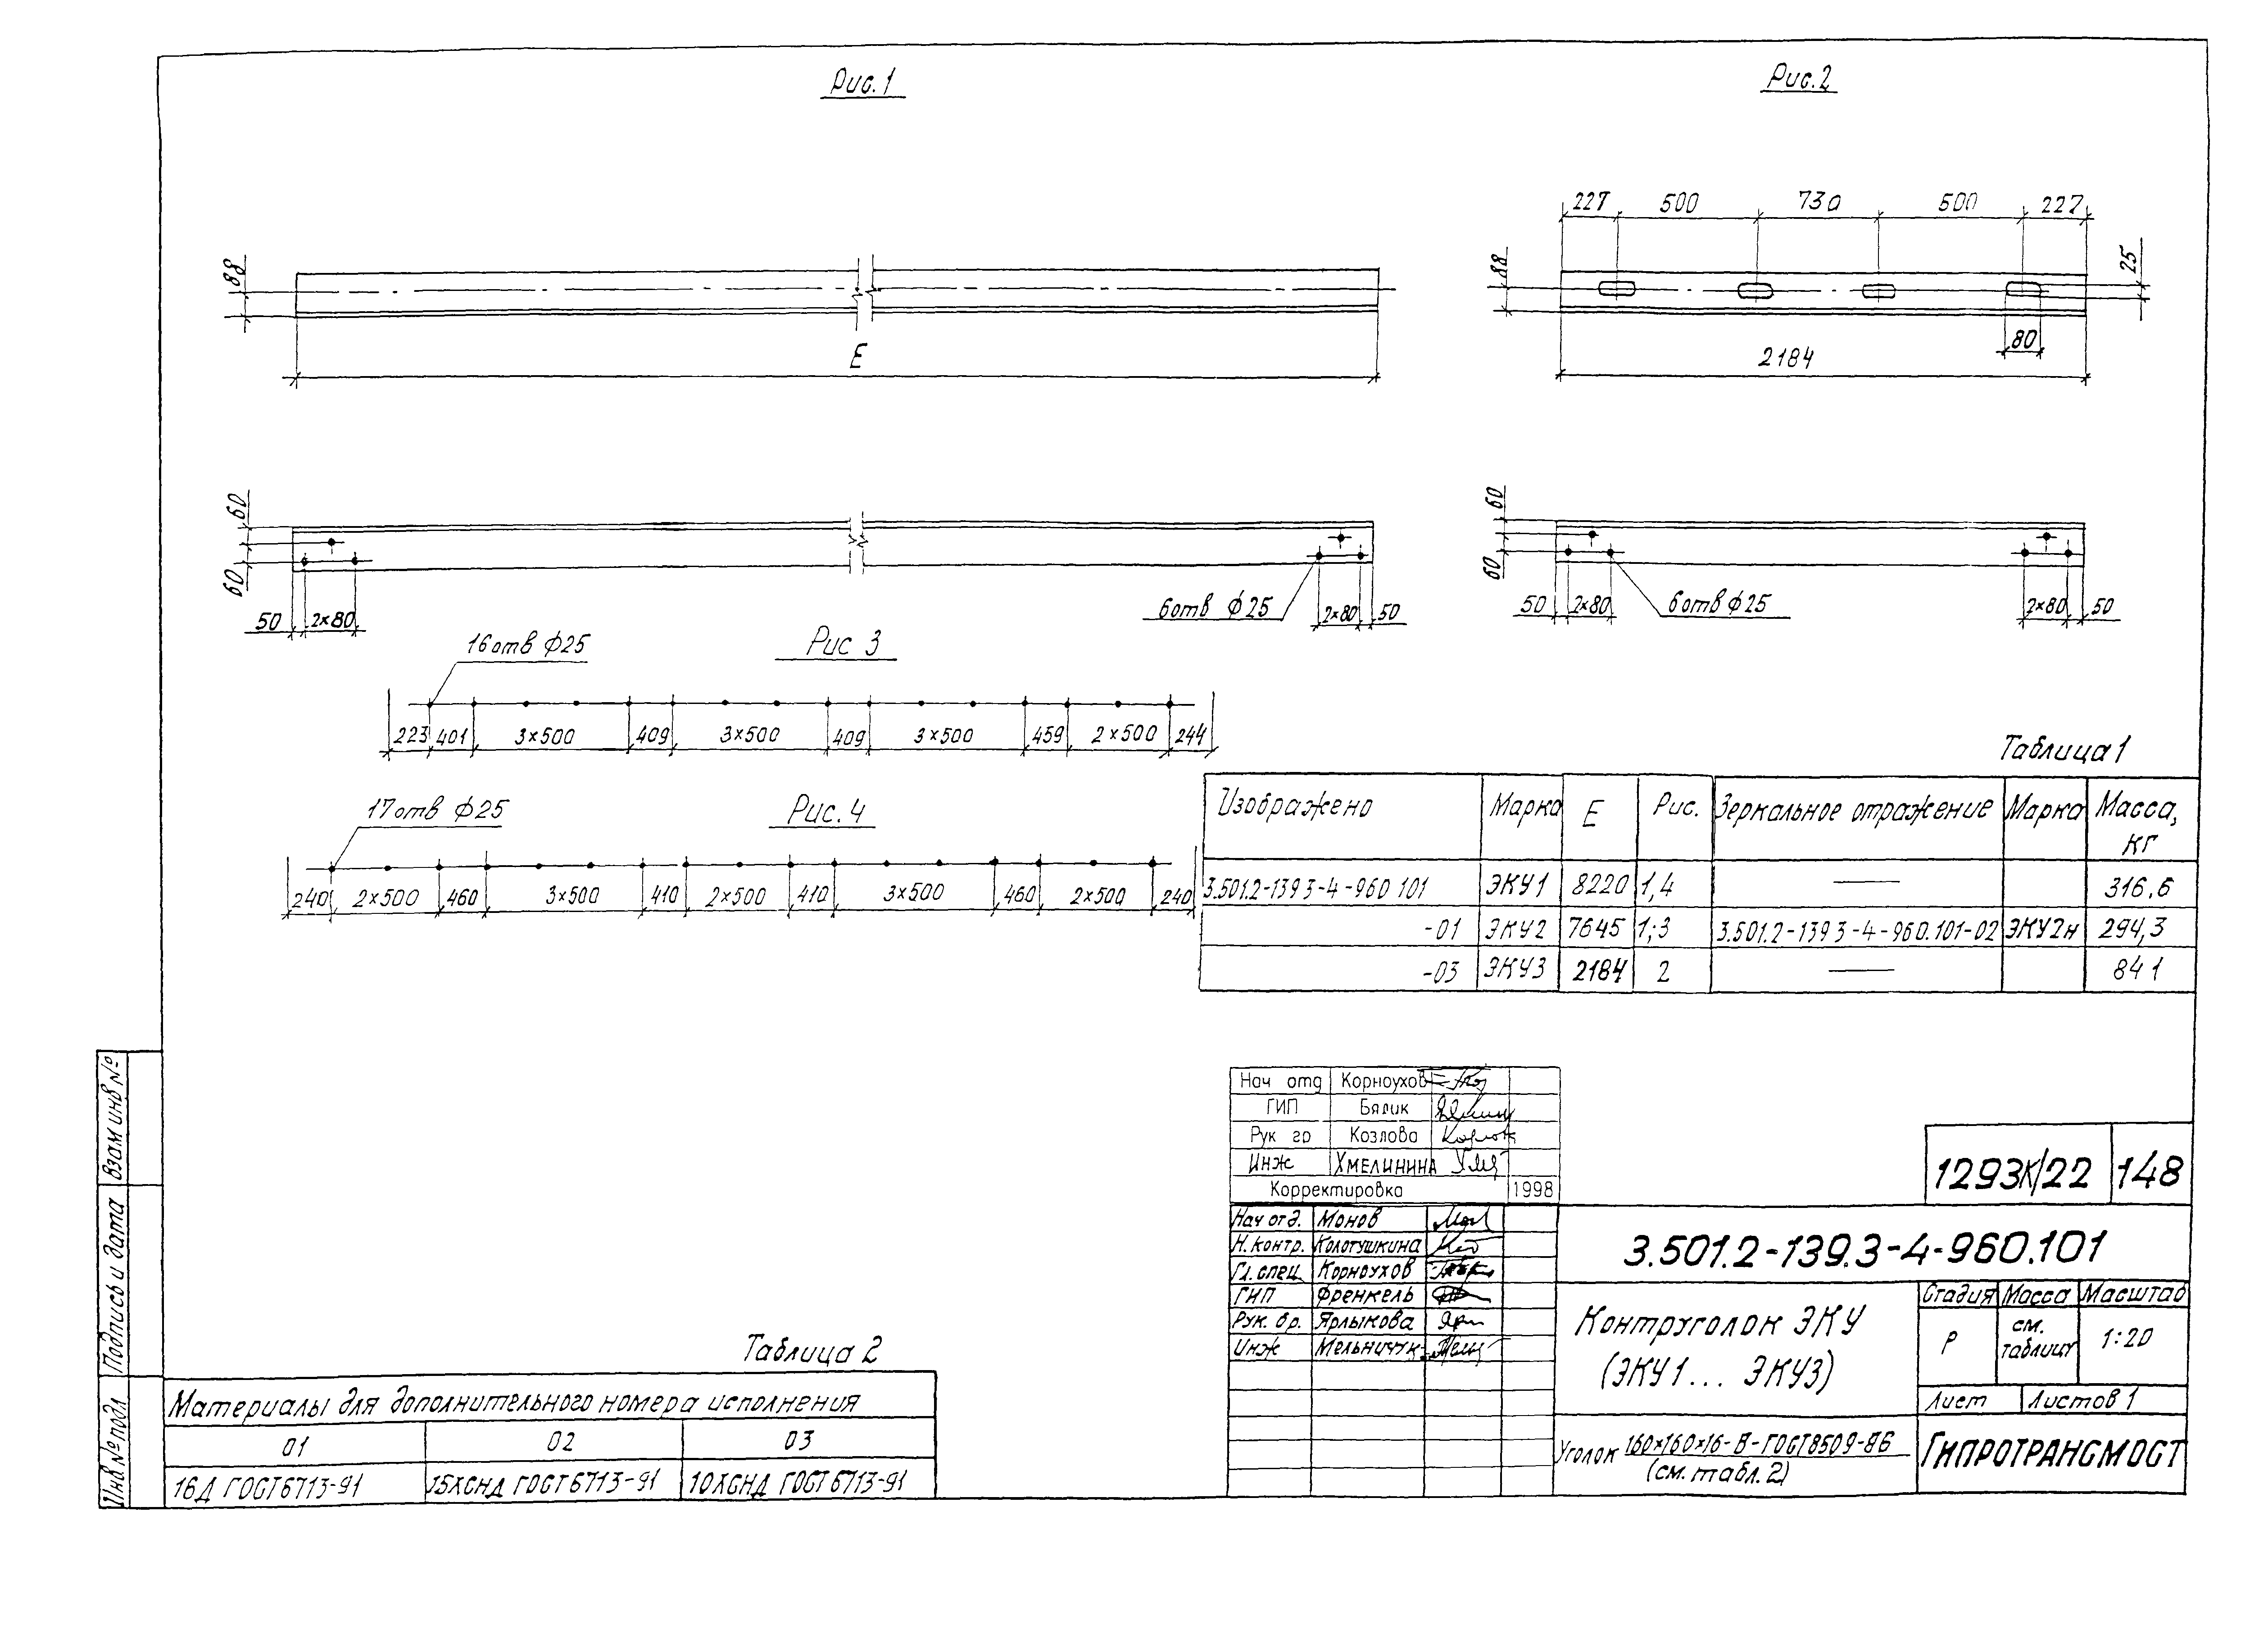 Рис.1
Рис.2
227 500 730 500 227
88
88
25
80
E
2184
60
60
50 2×80
6отв ф25
2×80 50
60
60
50 2×80
6отв ф25
2×80 50
16отв ф25
Рис 3
223 401 3×500 409 3×500 409 3×500 459 2×500 244
17отв ф25
Рис.4
240 2×500 460 3×500 410 2×500 410 3×500 460 2×500 240
Таблица 1
Изображено Марка E Рис. Зеркальное отражение Марка Масса, кг
3.501.2-139 3-4-960 101 ЭКУ1 8220 1,4 — 316.6
-01 ЭКУ2 7645 1;3 3.501.2-139 3-4-960.101-02 ЭКУ2н 294,3
-03 ЭКУ3 2184 2 — 84 1
Нач отд Корноухов
ГИП Бялик
Рук гр Козлова
Инж Хмелинина
Корректировка 1998
1293К/22 148
Нач отд. Монов
Н.контр. Колотушкина
Гл.спец. Корноухов
ГИП Френкель
Рук. бр. Ярлыкова
Инж Мельничук
3.501.2-139.3-4-960.101
Контруголок ЭКУ
(ЭКУ1... ЭКУ3)
Стадия Масса Масштаб
Р см. таблицу 1:20
Лист Листов 1
Уголок 160×160×16-В-ГОСТ8509-86
(см. табл. 2)
ГИПРОТРАНСМОСТ
Таблица 2
Материалы для дополнительного номера исполнения
01 02 03
16Д ГОСТ6713-91 15ХСНД ГОСТ6713-91 10ХСНД ГОСТ6713-91
Взам инв №
Подпись и дата
Инв № подл